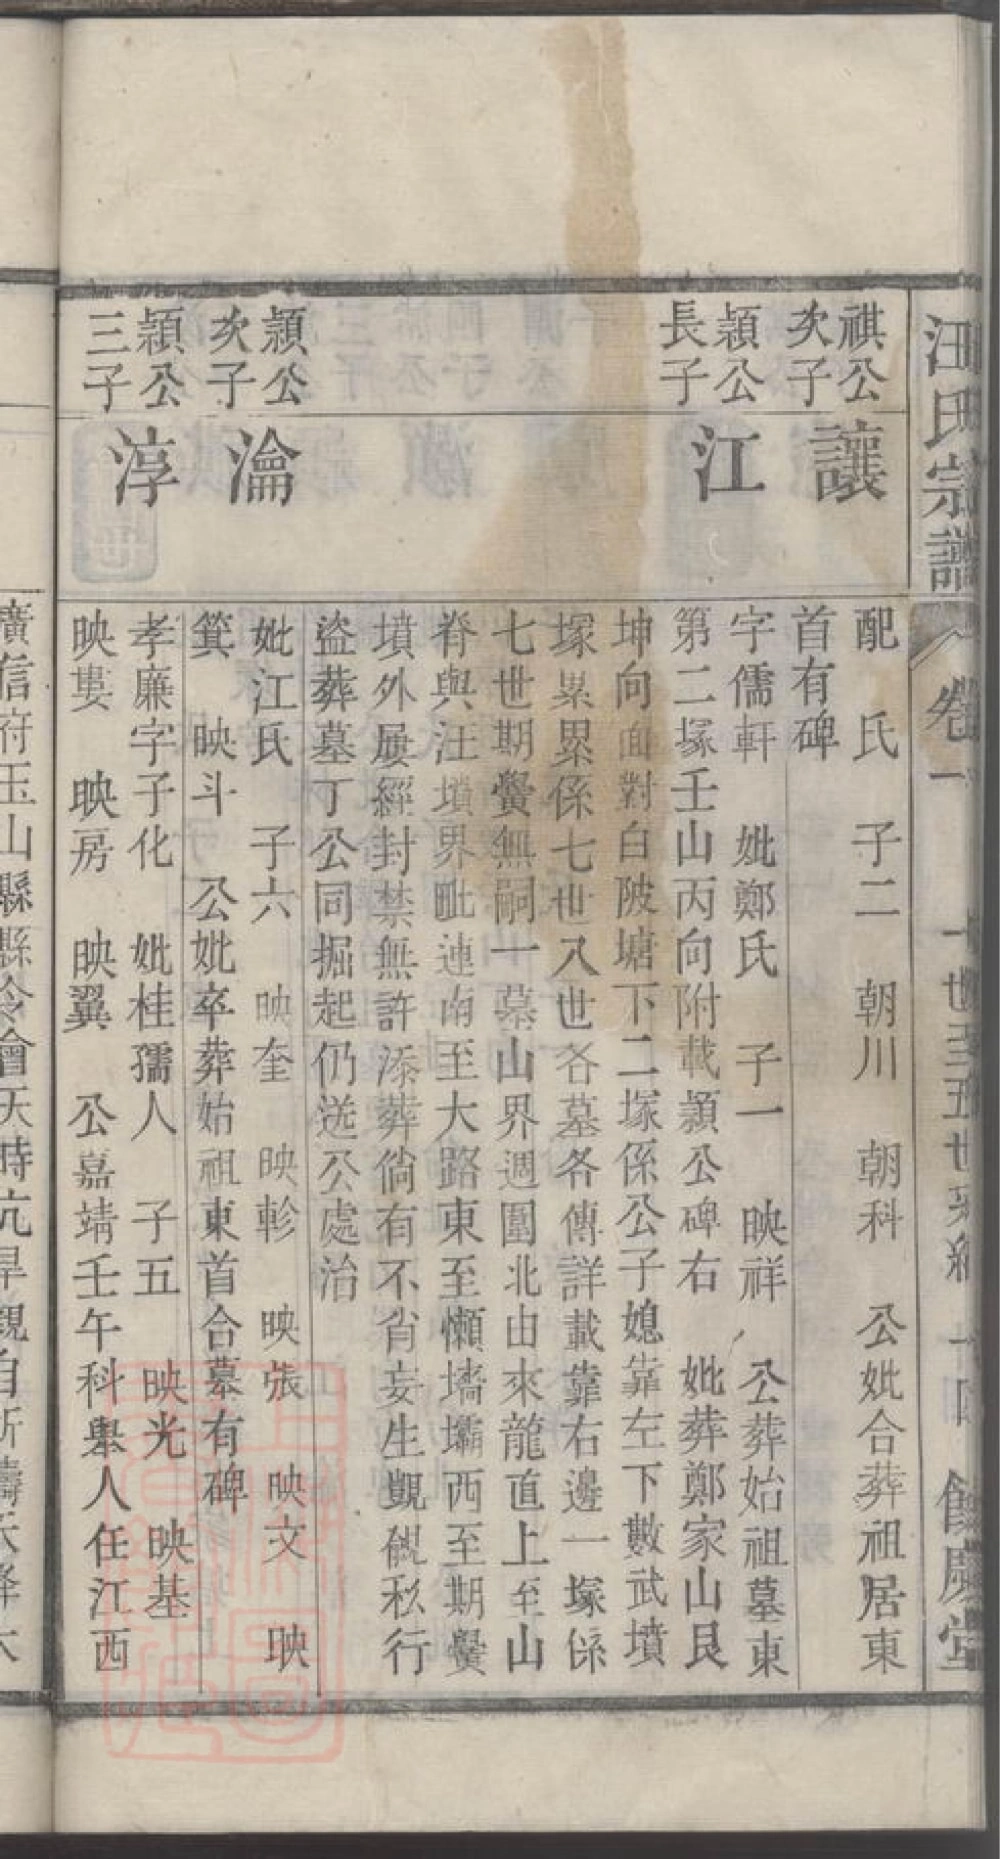 汪氏宗譜
卷一
十世至五世系統
十四
餘慶堂
祺公
次子
讓
配 氏 子二 朝川 朝科 公妣合葬祖居東
首有碑
穎公
長子
江
字儒軒 妣鄭氏 子一 映祥 公葬始祖墓東
第二塚壬山丙向附載穎公碑右 妣葬鄭家山艮
坤向面對白陂塘下二塚係公子媳靠左下數武墳
塚累累係七世入世各墓各傳詳載靠右邊一塚係
七世期黌無嗣一墓山界週圍北由來龍直上至山
脊與汪墳界毗連南至大路東至懶墻壩西至期黌
墳外屢經封禁無許添葬倘有不肖妄生覬覦私行
盜葬墓丁公同掘起仍送公處治
穎公
次子
瀹
妣江氏 子六 映奎 映軫 映張 映文 映
箕 映斗 公妣卒葬始祖東首合墓有碑
穎公
三子
淳
孝廉字子化 妣桂孺人 子五 映光 映基
映婁 映房 映翼 公嘉靖壬午科舉人任江西
廣信府玉山縣縣令會天時亢旱親自祈禱天降大